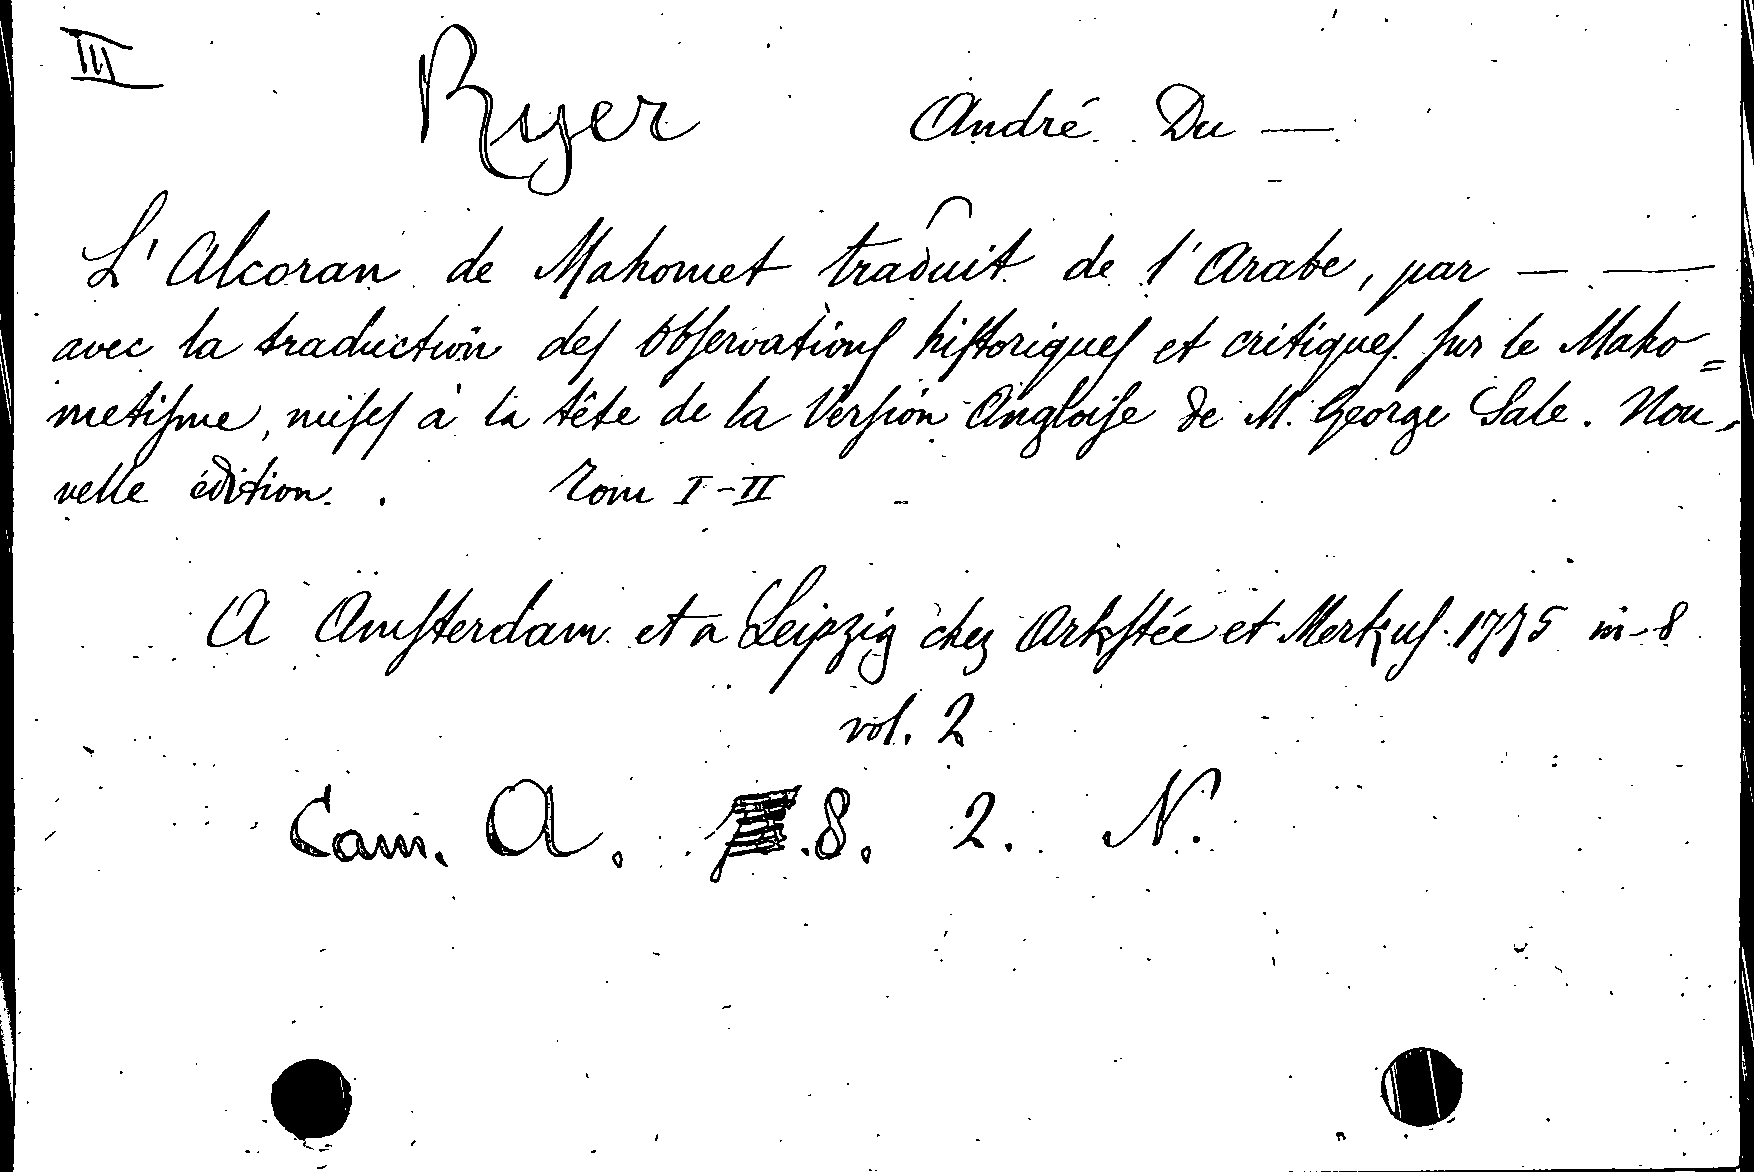 III
Ryer André Du —
L'Alcoran de Mahomet traduit de l'Arabe, par — —
avec la traduction deſ Obſervationſ hiſtoriqueſ et critiqueſ ſur le Maho=
metiſme, miſeſ à la tête de la Verſion Angloiſe de M. George Sale. Nou-
velle édition. Tom I-II
A Amſterdam et a Leipzig chez Arkſtée et Merkuſ. 1775 in-8
vol. 2
Cam. A. 8. 2. N.